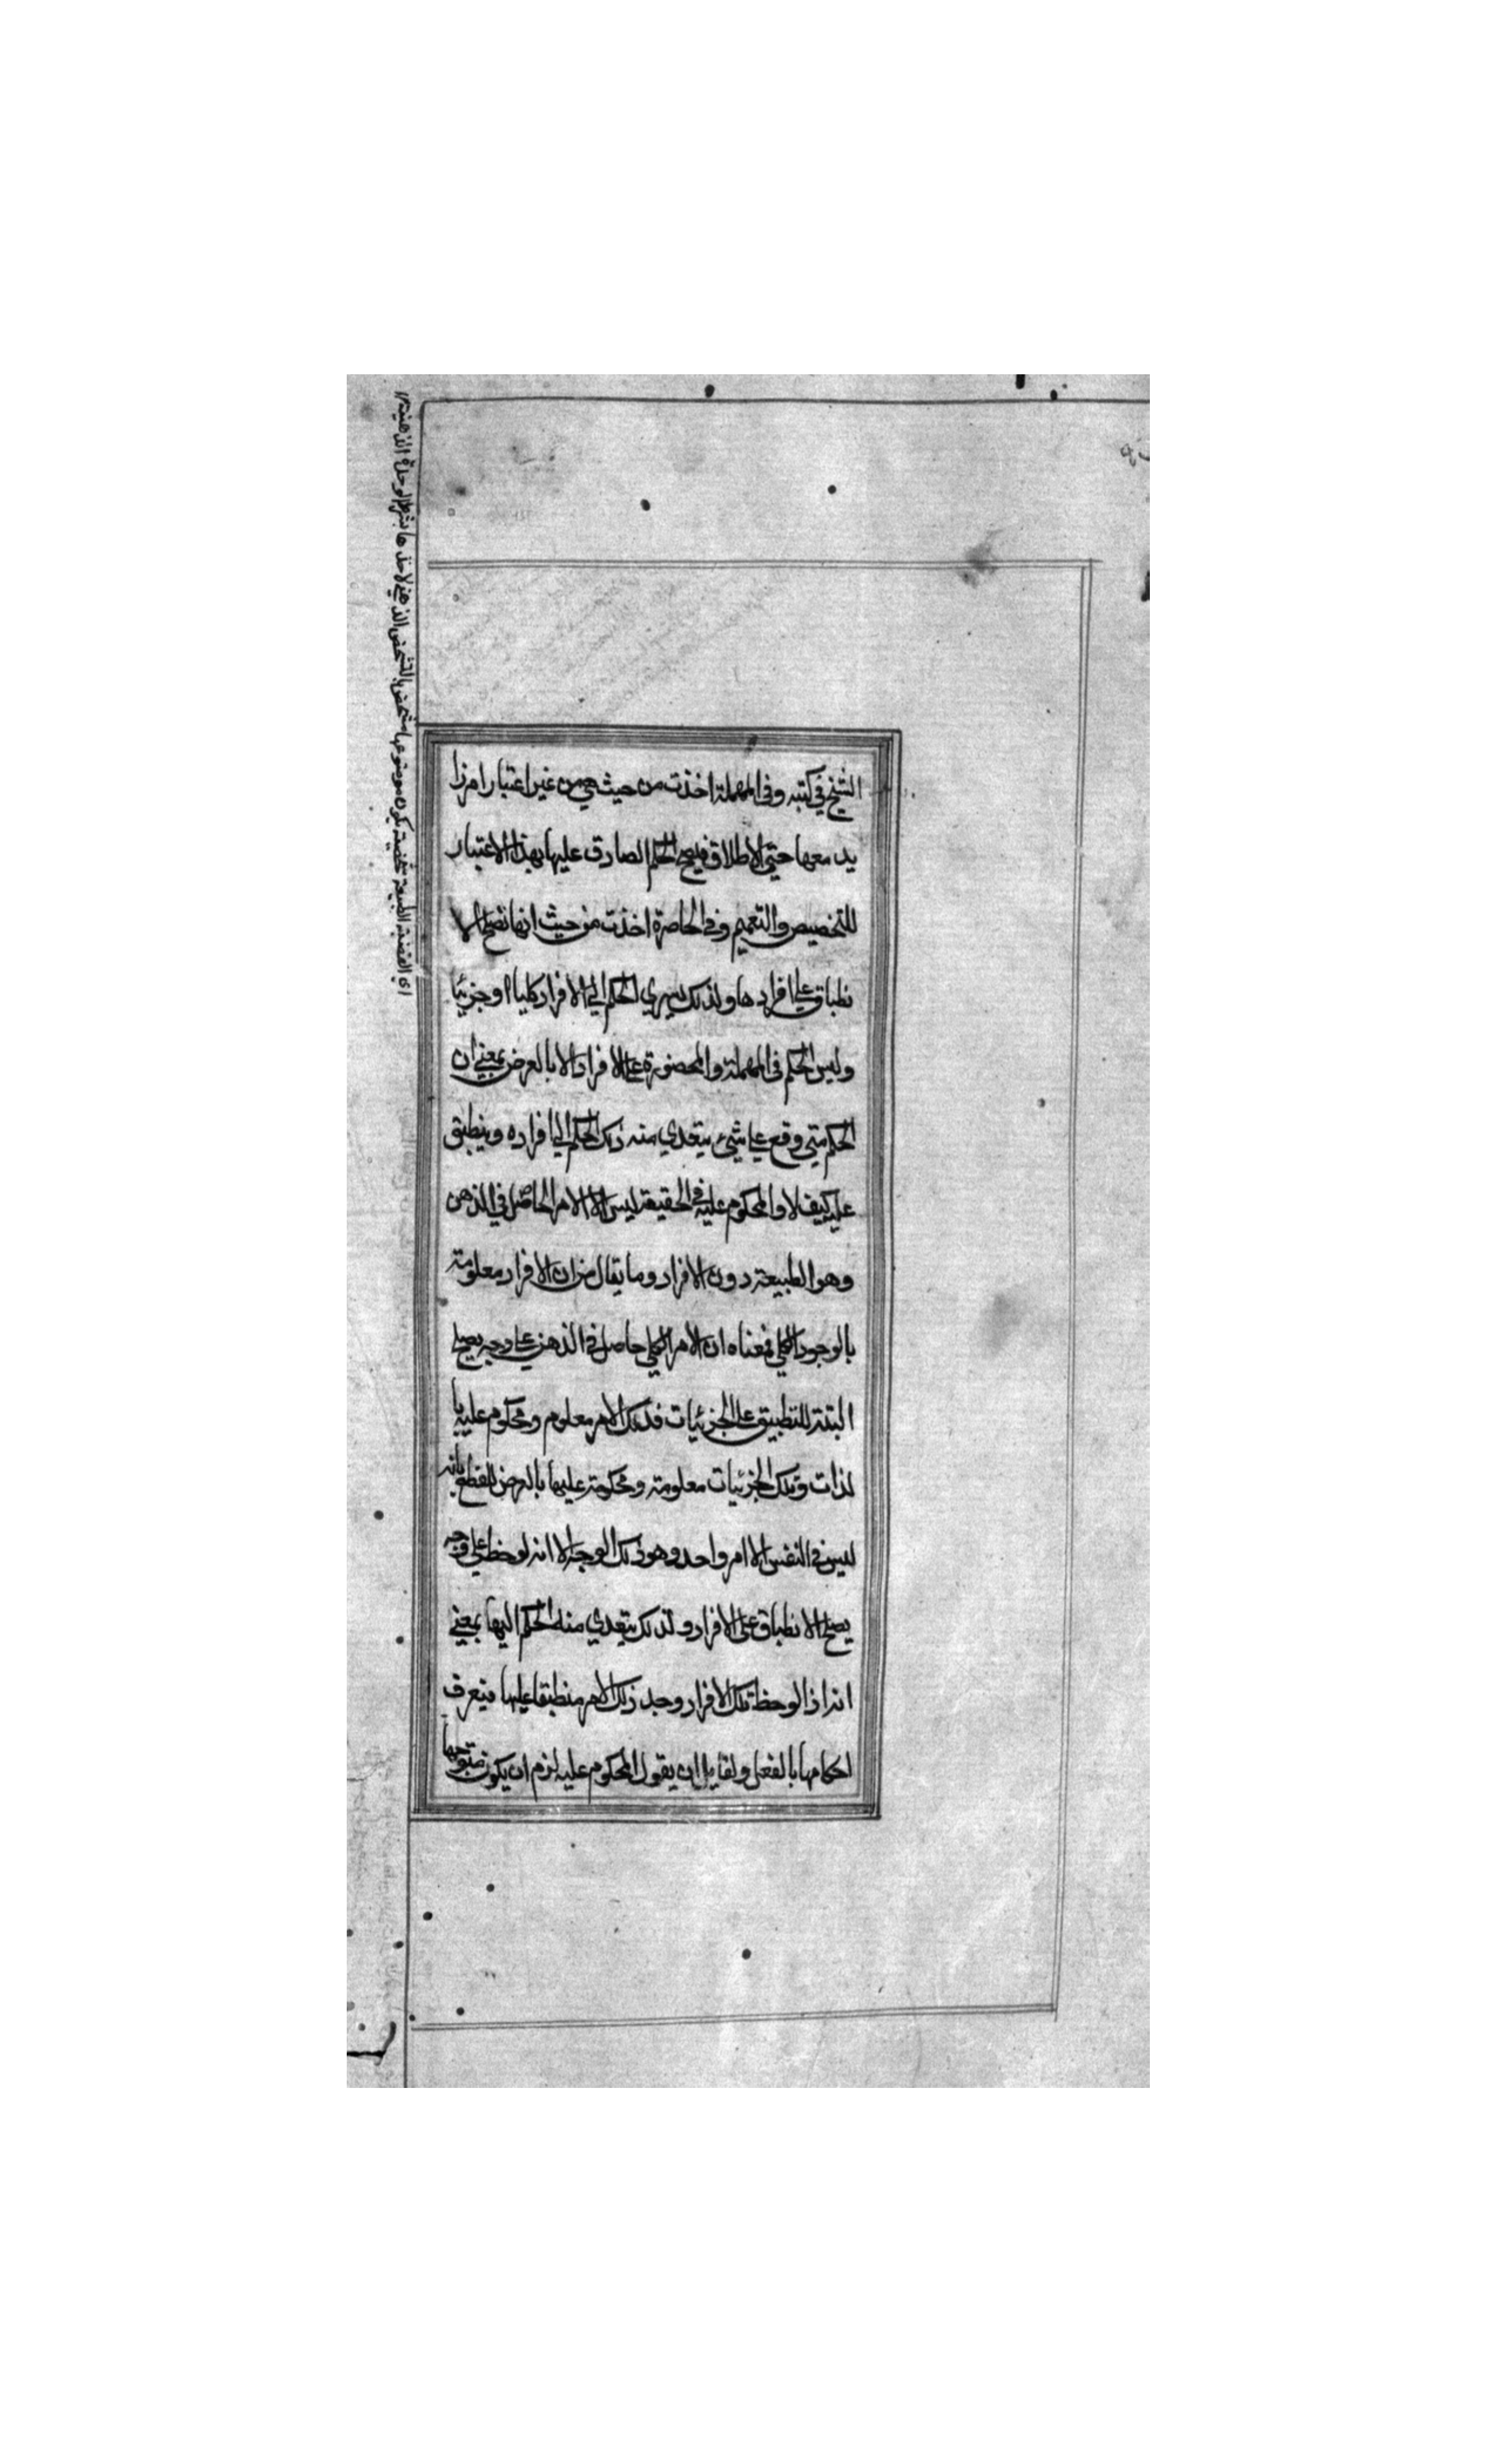 الشيخ في كتبه وفي المهملة اخذت من حيث هي من غير اعتبار امر زا
يد معها حتي الاطلاق فيصح الحكم الصادق عليها بهذا الاعتبار
للتخصيص والتعميم وفي الحاصرة اخذت من حيث انها تصلح الا
نطباق علي افرادها ولذلك يسري الحكم الي الافراد كليا او جزئيا
وليس الحكم في المهملة والمحصورة علي الافراد الا بالعرض بمعني ان
الحكم متي وقع علي شيء يتعدي منه ذلك الحكم الي افراده وينطبق
عليه كيف لا والمحكوم عليه في الحقيقة ليس الا الامر الحاصل في الذهن
وهو الطبيعة دون الافراد وما يقال من ان الافراد معلومة
بالوجود الكلي فمعناه ان الامر الكلي حاصل في الذهن علي وجه يصلح
البتة للتطبيق علي الجزئيات فذلك الامر معلوم ومحكوم عليه با
لذات وتلك الجزئيات معلومة ومحكومة عليها بالعرض للقطع بانه
ليس في النفس الا امر واحد وهو ذلك الوجه الا انه لوحظ علي وجه
يصلح الانطباق علي الافراد ولذلك يتعدي منه الحكم اليها بمعني
انه اذا لوحظ تلك الافراد وجد ذلك الامر منطبقا عليها فيعرف
احكامها بالفعل ولقايل ان يقول المحكوم عليه لزم ان يكون متوجها
اي القضية الطبيعة شخصية يكون موضوعها متشخص بالتشخص الذهني لاخذها بشرط الوحدة الذهنية ١٢